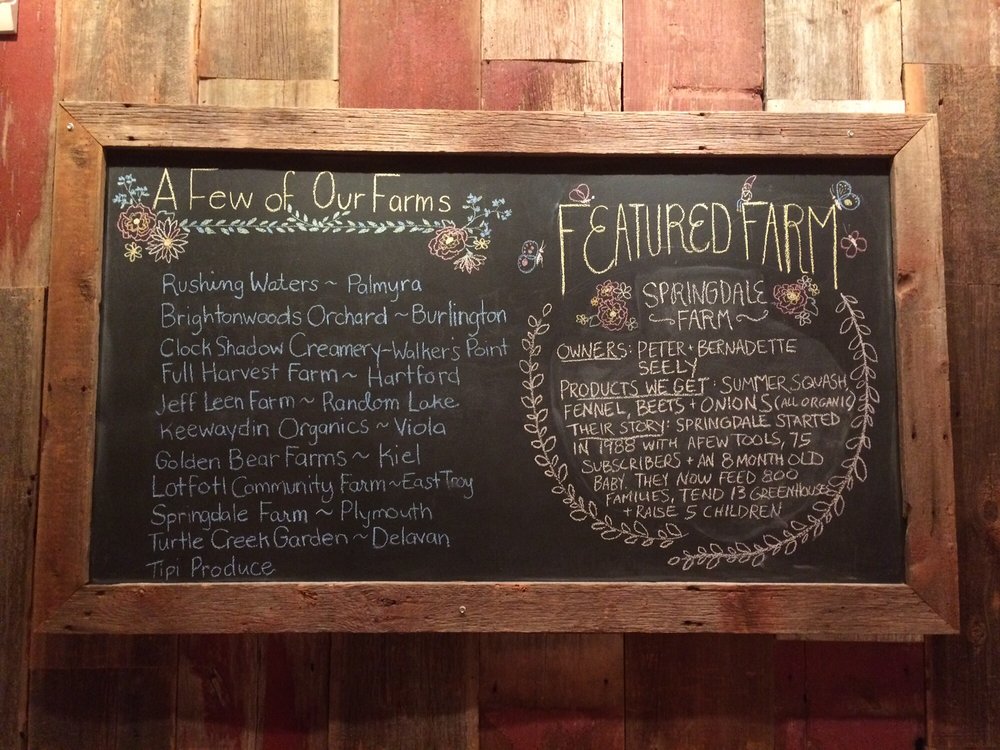 A Few of Our Farms
Rushing Waters ~ Palmyra
Brightonwoods Orchard ~ Burlington
Clock Shadow Creamery ~ Walker's Point
Full Harvest Farm ~ Hartford
Jeff Leen Farm ~ Random Lake
Keewaydin Organics ~ Viola
Golden Bear Farms ~ Kiel
Lotfotl Community Farm ~ East Troy
Springdale Farm ~ Plymouth
Turtle Creek Garden ~ Delavan
Tipi Produce
FEATURED FARM
SPRINGDALE
~ FARM ~
OWNERS: PETER + BERNADETTE
SEELY
PRODUCTS WE GET: SUMMER SQUASH,
FENNEL, BEETS + ONIONS (ALL ORGANIC)
THEIR STORY: SPRINGDALE STARTED
IN 1988 WITH A FEW TOOLS, 75
SUBSCRIBERS + AN 8 MONTH OLD
BABY. THEY NOW FEED 800
FAMILIES, TEND 13 GREENHOUSES
+ RAISE 5 CHILDREN